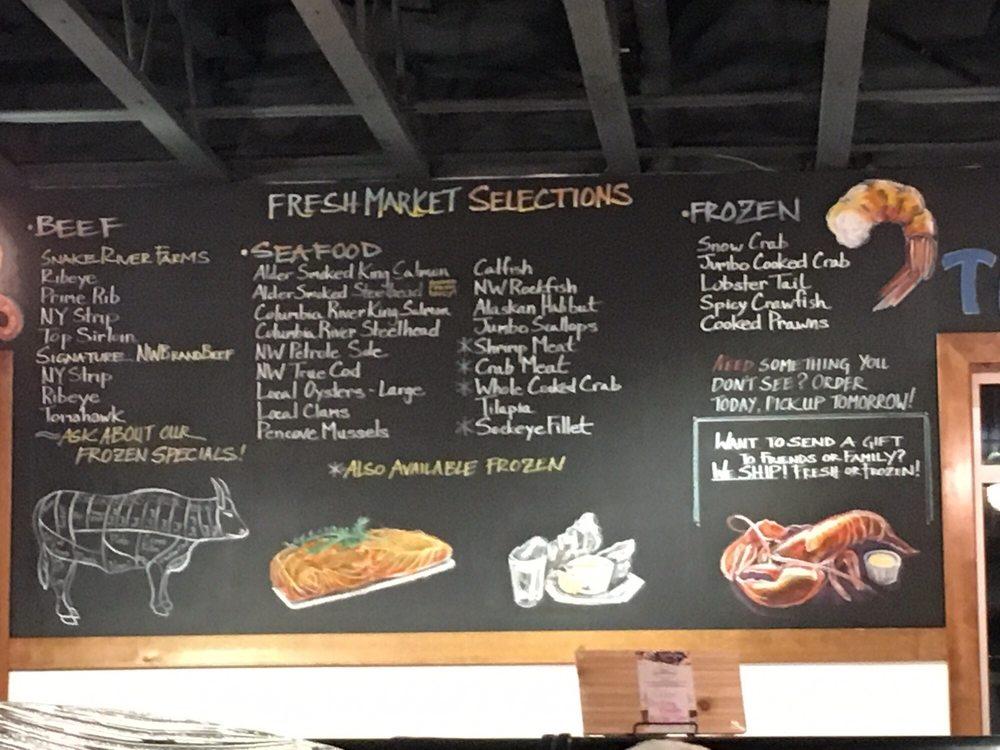 FRESH MARKET SELECTIONS
•BEEF
SNAKE RIVER FARMS
Ribeye
Prime Rib
NY Strip
Top Sirloin
SIGNATURE NW BRAND BEEF
NY Strip
Ribeye
Tomahawk
~ASK ABOUT OUR
FROZEN SPECIALS!
•SEAFOOD
Alder Smoked King Salmon
Alder Smoked Steelhead
Columbia River King Salmon
Columbia River Steelhead
NW Petrale Sole
NW True Cod
Local Oysters - Large
Local Clams
Pencove Mussels
Catfish
NW Rockfish
Alaskan Halibut
Jumbo Scallops
*Shrimp Meat
*Crab Meat
*Whole Cooked Crab
Tilapia
*Sockeye Fillet
*ALSO AVAILABLE FROZEN
•FROZEN
Snow Crab
Jumbo Cooked Crab
Lobster Tail
Spicy Crawfish
Cooked Prawns
NEED SOMETHING YOU
DON'T SEE? ORDER
TODAY, PICK UP TOMORROW!
WANT TO SEND A GIFT
TO FRIENDS OR FAMILY?
WE SHIP! FRESH OR FROZEN!
T